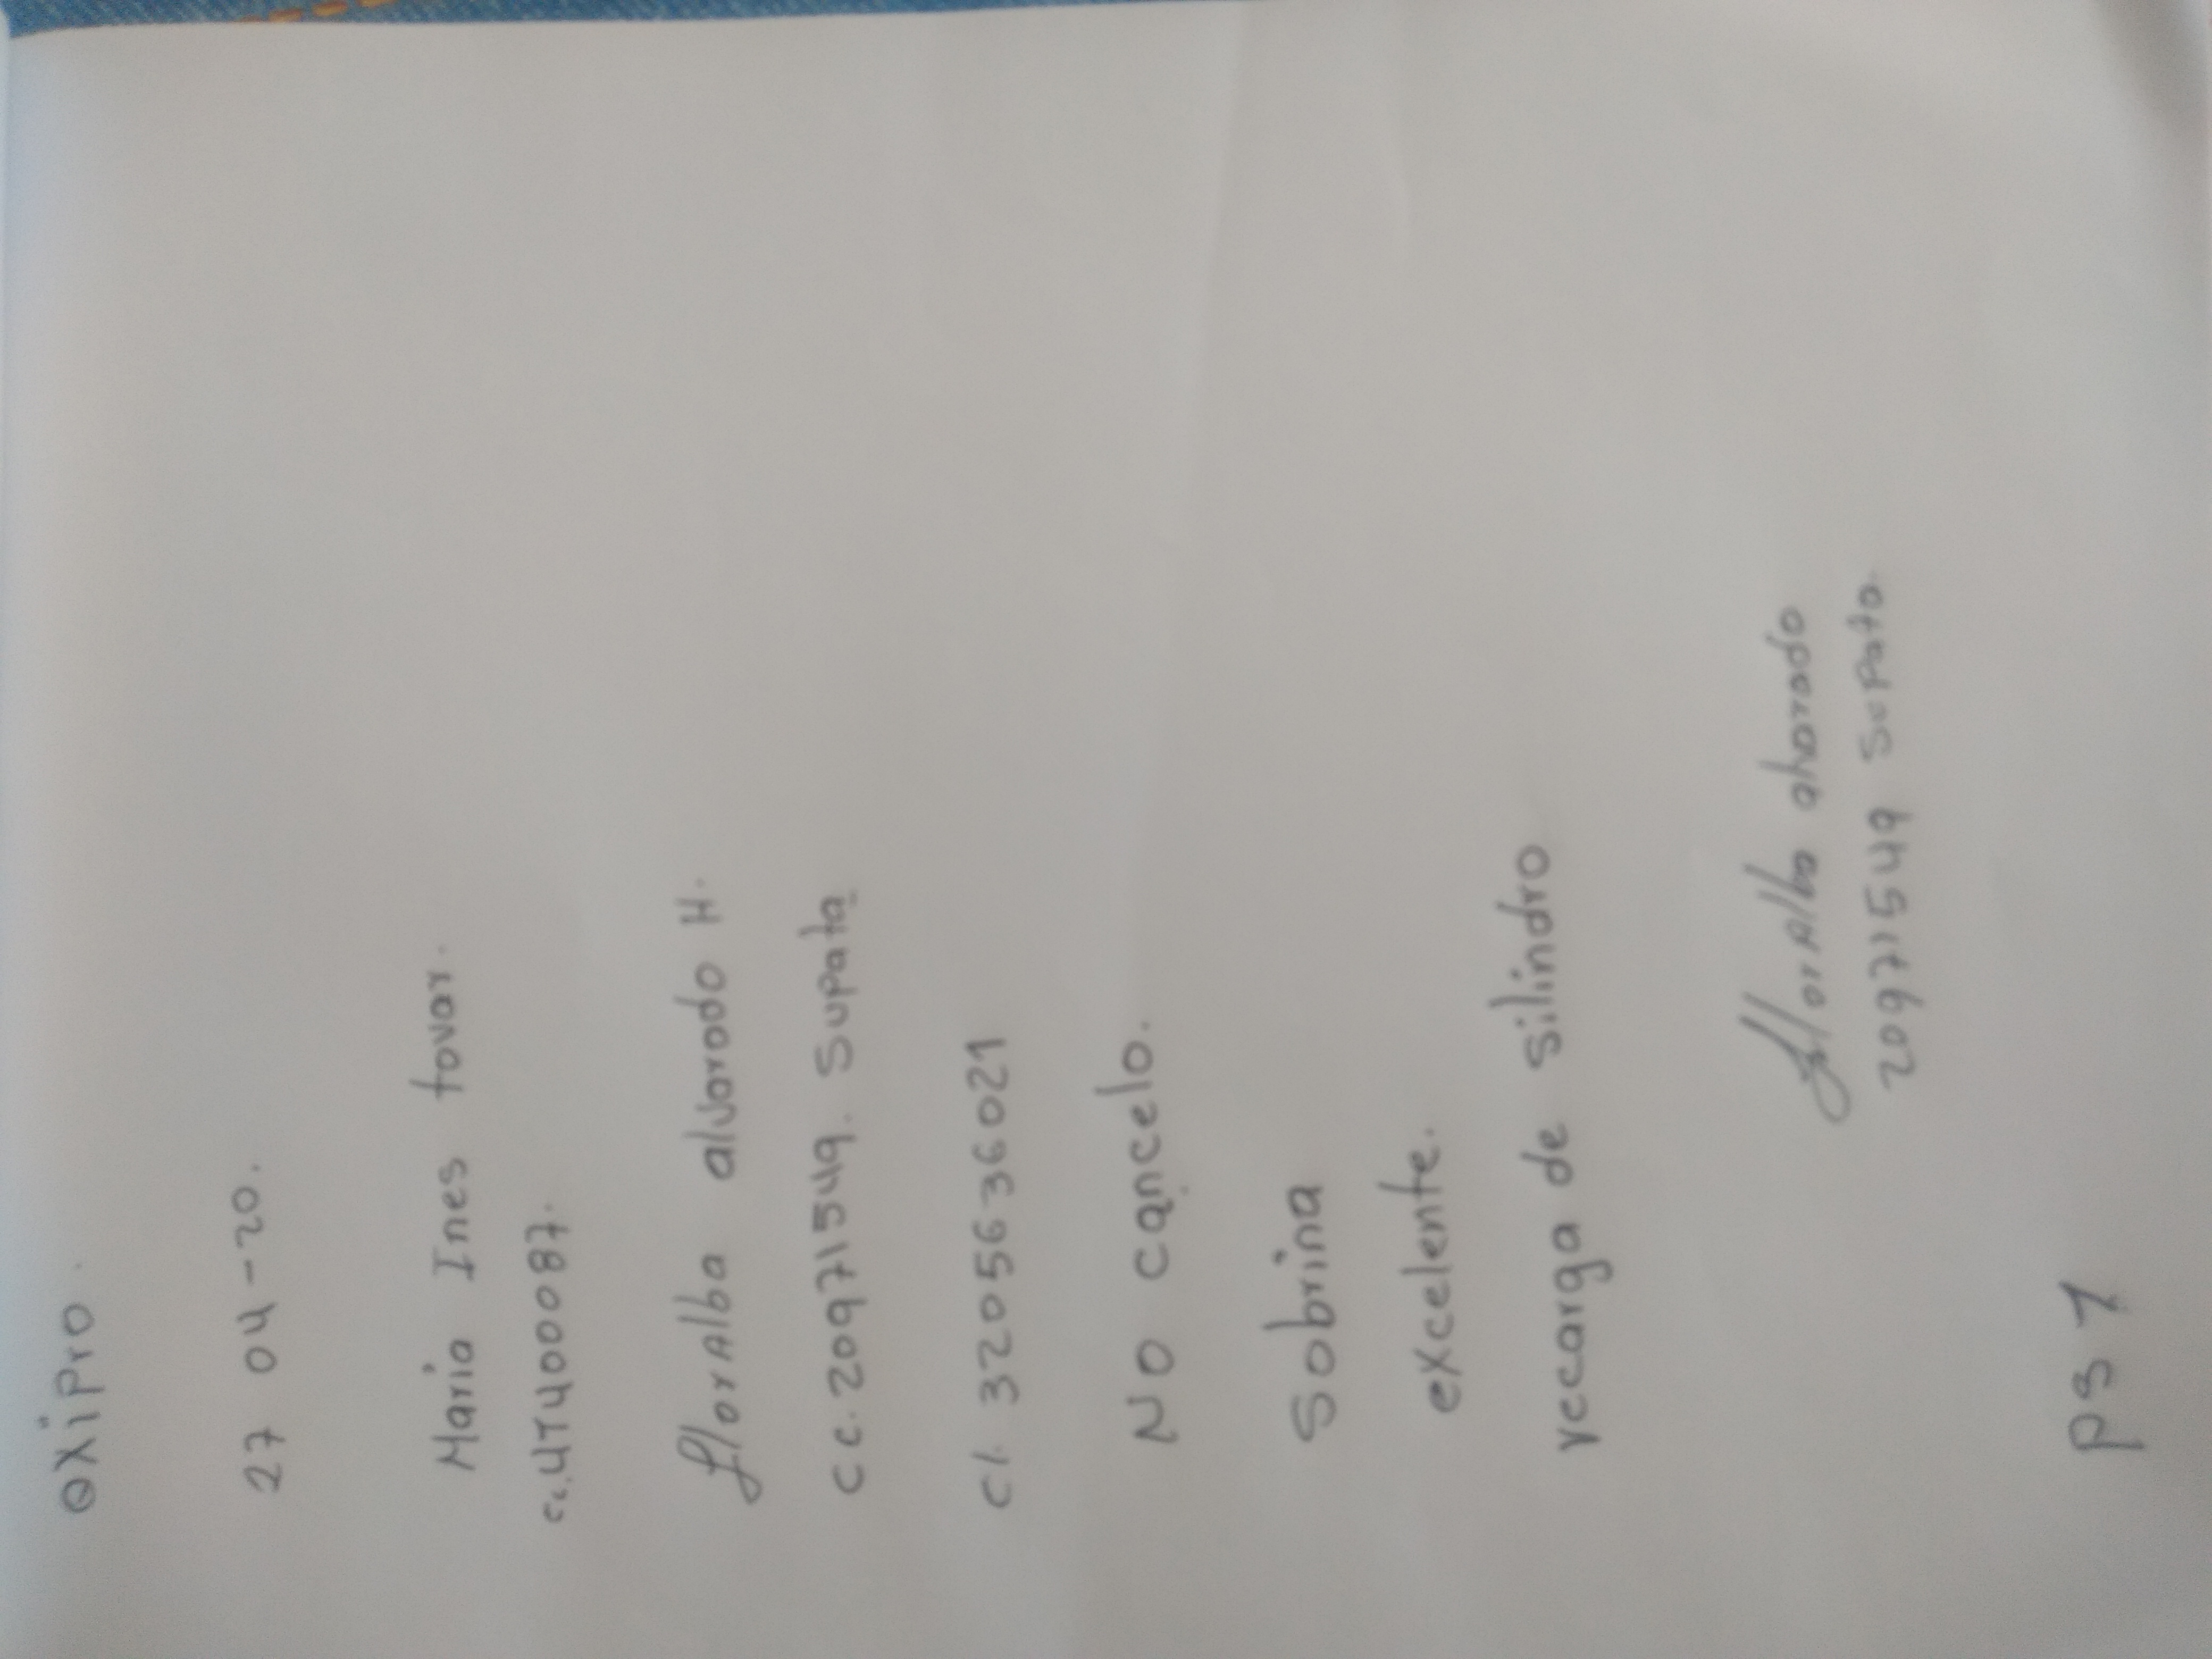 OXiPrO.
27 04-20.
Maria Ines tovar.
cc.41400087.
florAlba alvarado H.
CC. 20971549. Supata
Cl. 3205636021
NO cancelo.
Sobrina
excelente.
recarga de silindro
florAlba alvarado
20971549 Supata.
PS 1